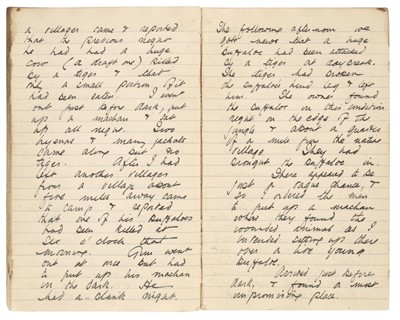 a villager came & reported
that the previous night
he had had a huge
cow (a draft one) killed
by a tiger & that
only a small portion of it
had been eaten. I went
out just before dark, put
up a machan & sat
up all night. Two
hyenas & many jackals
came along but no
tiger. After I had
left another villager
from a village about
five miles away came
to camp & reported
that one of his buffaloes
had been killed at
six o'clock that
morning. Gim went
out at once but had
to put up his machan
in the dark. He
had a blank night.
The following afternoon we
got news that a huge
buffaloe had been attacked
by a tiger at daybreak.
The tiger had broken
the buffaloe's hind leg & left
him. The owner found
the buffaloe in this condition
right on the edge of the
jungle & about a quarter
of a mile from the native
village. They had
brought the buffaloe in
There appeared to be
just a vague chance, &
so I ordered the men
to put up a machan
where they found the
wounded animal as I
intended sitting up there
over live young
buffaloe.
Arrived just before
dark, & found a most
unpromising place.